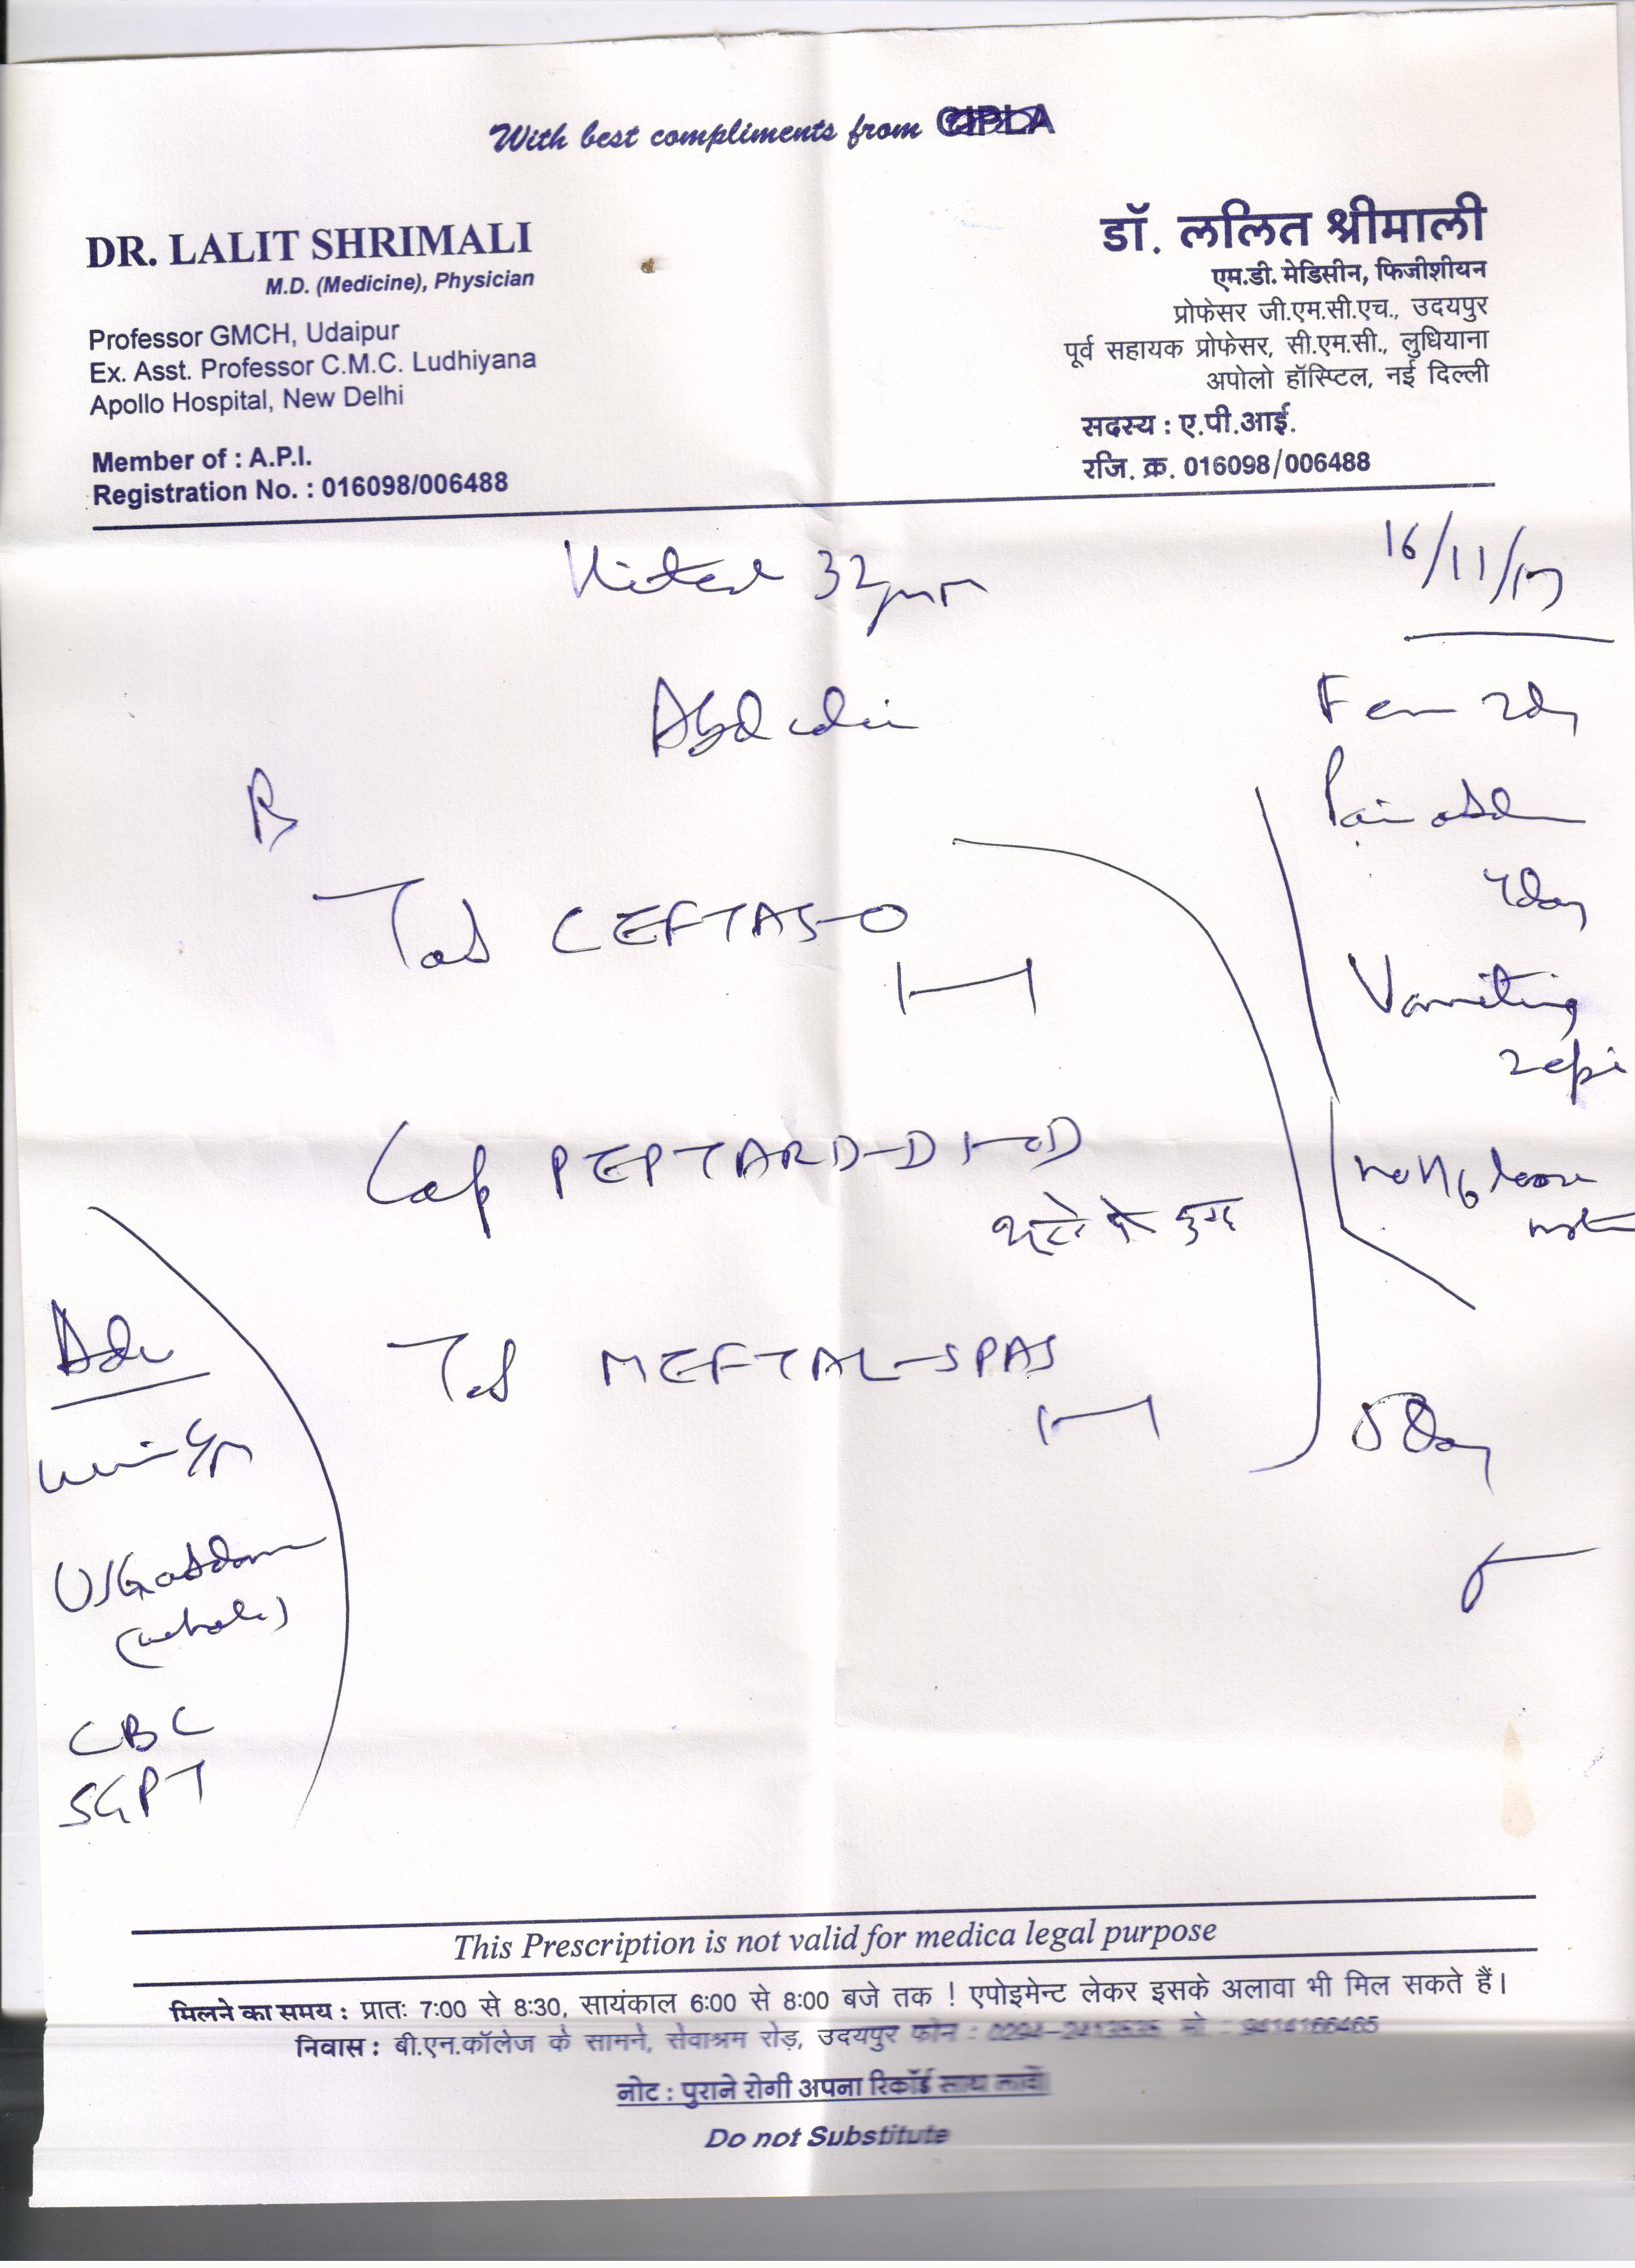 With best compliments from CIPLA
DR. LALIT SHRIMALI
M.D. (Medicine), Physician
Professor GMCH, Udaipur
Ex. Asst. Professor C.M.C. Ludhiyana
Apollo Hospital, New Delhi
Member of : A.P.I.
Registration No. : 016098/006488
डॉ. ललित श्रीमाली
एम.डी. मेडिसीन, फिजीशीयन
प्रोफेसर जी.एम.सी.एच., उदयपुर
पूर्व सहायक प्रोफेसर, सी.एम.सी., लुधियाना
अपोलो हॉस्पिटल, नई दिल्ली
सदस्य : ए.पी.आई.
रजि. क्र. 016098/006488
16/11/17
32
Pain abdm
Vomiting
2 epi
loose
Tab CEFTAS-O
1—1
Cap PEPTARD-D 1-OD
Tab MEFTAL-SPAS
1—1
5 Day
Adv
USG abdom
(whole)
CBC
SGPT
This Prescription is not valid for medica legal purpose
मिलने का समय : प्रातः 7:00 से 8:30, सायंकाल 6:00 से 8:00 बजे तक ! एपोइमेन्ट लेकर इसके अलावा भी मिल सकते हैं।
निवास : बी.एन.कॉलेज के सामने, सेवाश्रम रोड़, उदयपुर फोन : 0294-2413535 मो : 9414166465
नोट : पुराने रोगी अपना रिकॉर्ड साथ लावें
Do not Substitute